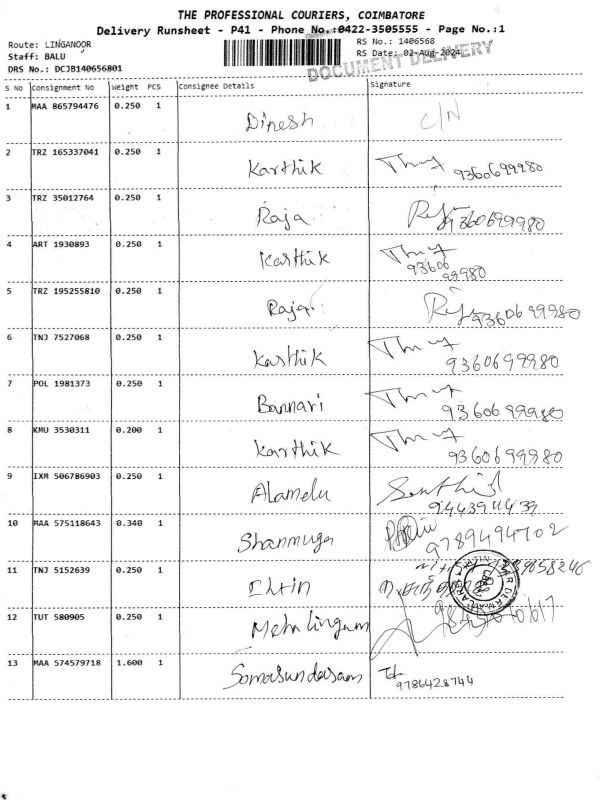 THE PROFESSIONAL COURIERS, COIMBATORE
Delivery Runsheet - P41 - Phone No.:0422-3505555 - Page No.:1
Route: LINGANOOR
RS No.: 1406568
Staff: BALU
RS Date: 02-Aug-2024
DRS No.: DCJB140656801
DOCUMENT DELIVERY
S No Consignment No Weight PCS Consignee Details Signature
1 MAA 865794476 0.250 1 Dinesh C/N
2 TRZ 165337041 0.250 1 Karthik 9360699980
3 TRZ 35012764 0.250 1 Raja 9360699980
4 ART 1930893 0.250 1 Karthik 93606
99980
5 TRZ 195255810 0.250 1 Raja 9360699980
6 TNJ 7527068 0.250 1 Karthik
9360699980
7 POL 1981373 0.250 1 Bannari
9360699980
8 KMU 3530311 0.200 1 Karthik
9360699980
9 IXM 506786903 0.250 1 Alamelu Senthil
10 MAA 575118643 0.340 1 Shanmuga
9789494702
11 TNJ 5152639 0.250 1
12 TUT 580905 0.250 1 Mehalingam
13 MAA 574579718 1.600 1 Somasundaram
9786428744